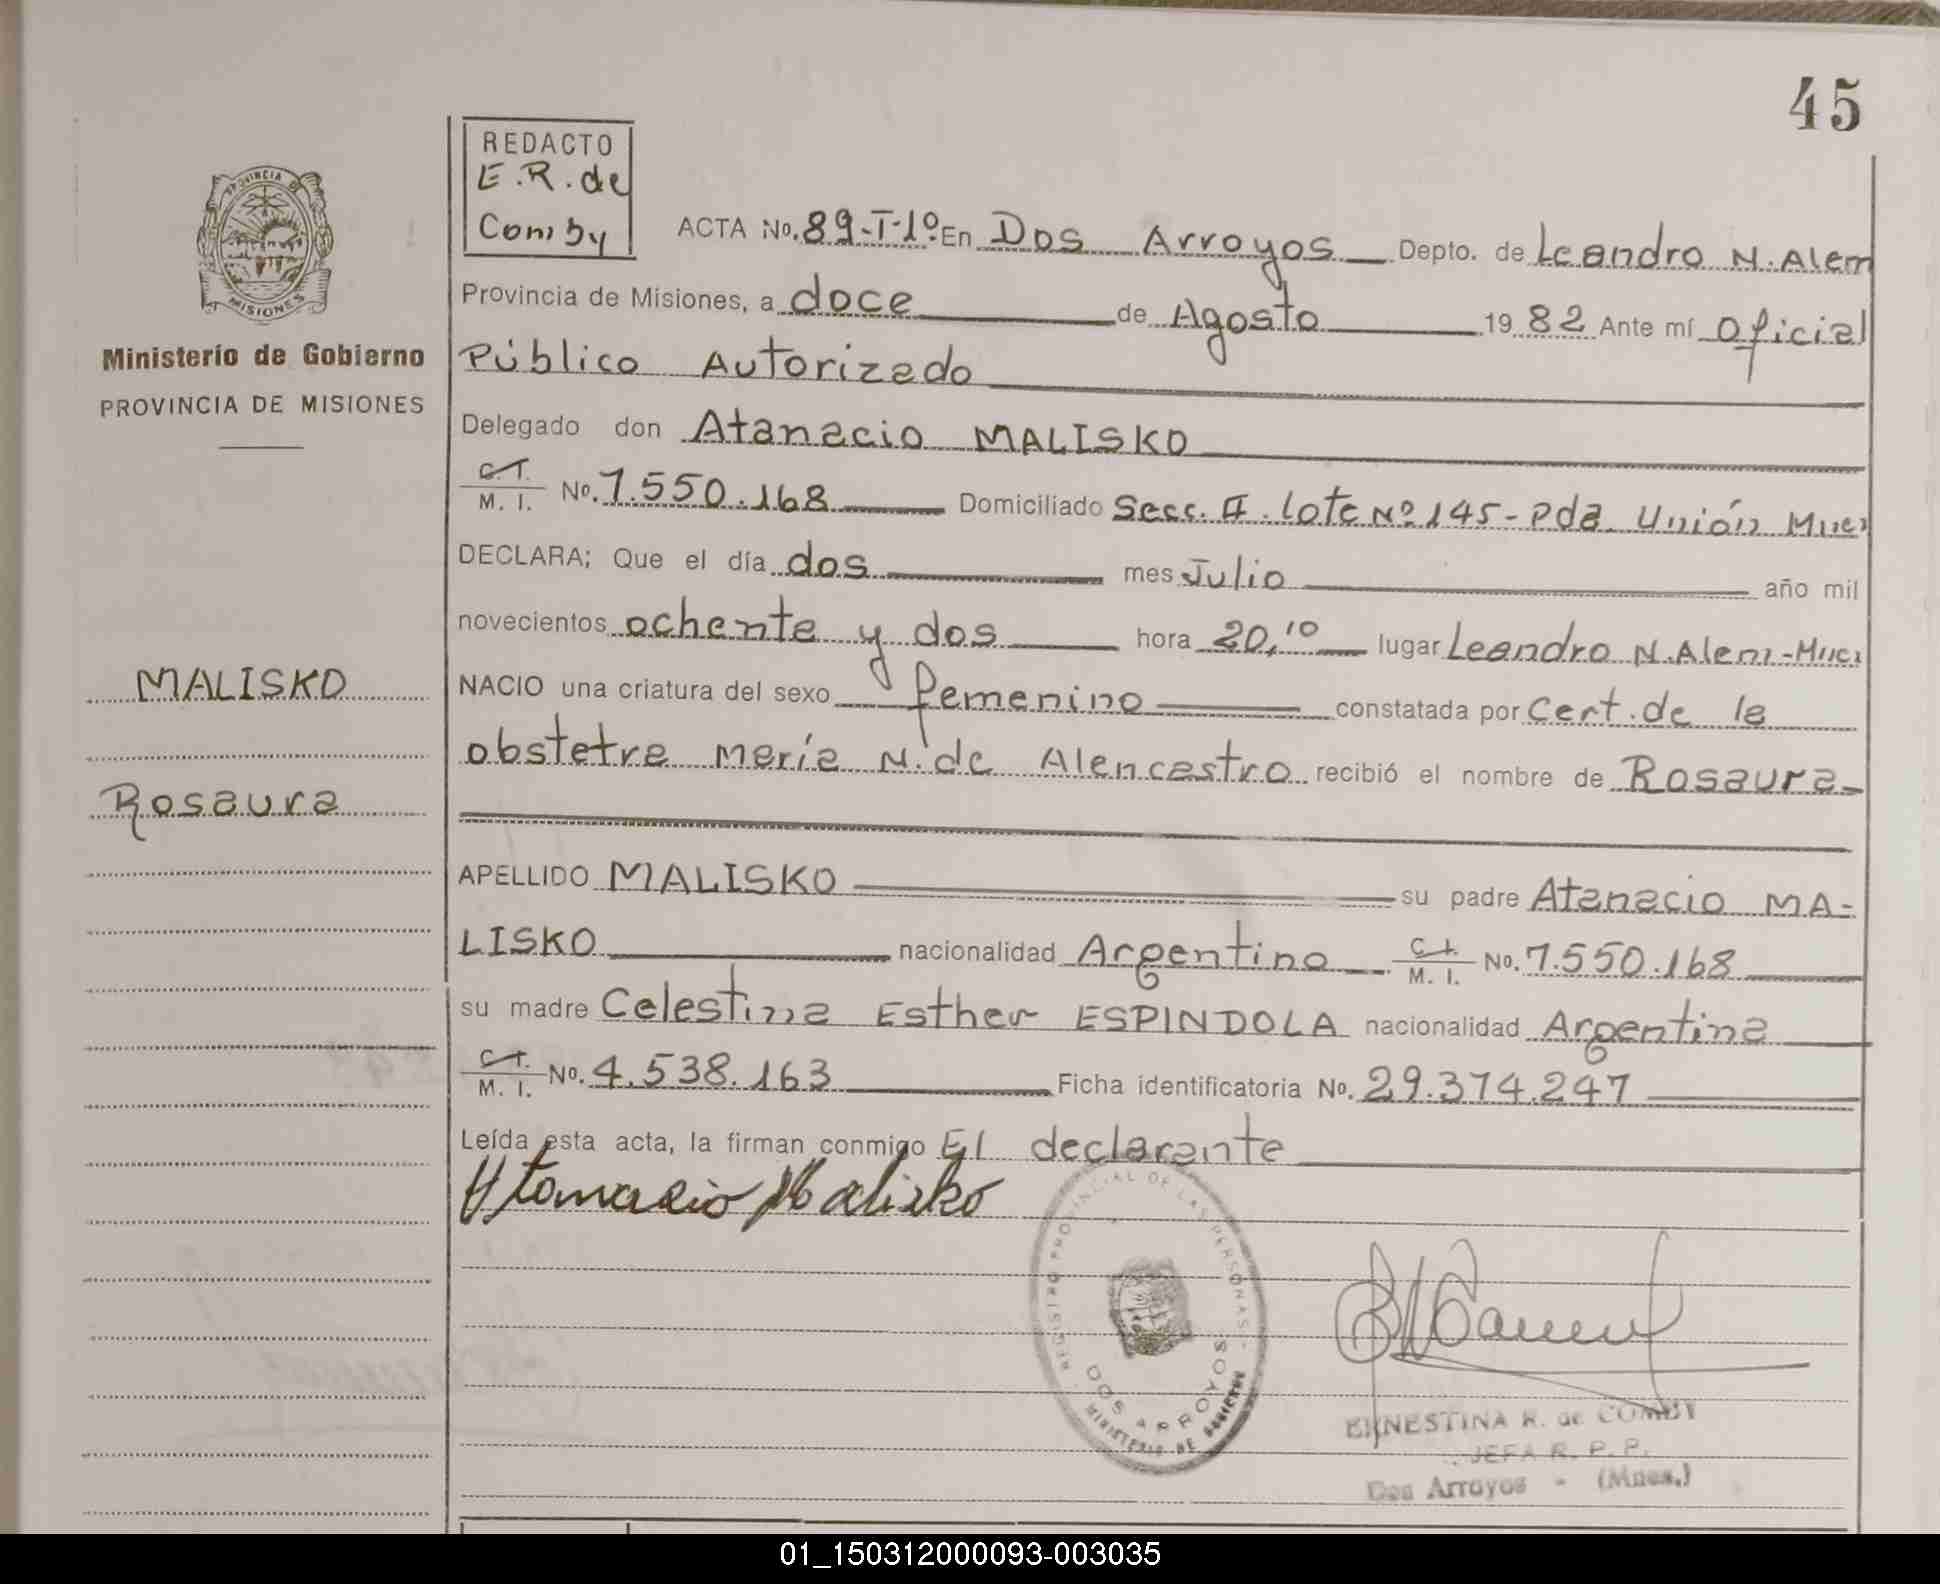 45
REDACTO
E.R. de
Comby
PROVINCIA DE
MISIONES
Ministerio de Gobierno
PROVINCIA DE MISIONES
ACTA No. 89-T-1º En Dos Arroyos Depto. de Leandro N. Alem
Provincia de Misiones, a doce de Agosto 1982 Ante mí Oficial
Público Autorizado
Delegado don Atanacio MALISKO
C.I. M. I. No. 7.550.168 Domiciliado Secc. A. lote Nº 145 - Pda Unión Mnes
DECLARA; Que el día dos mes Julio año mil
novecientos ochenta y dos hora 20,10 lugar Leandro N. Alem - Mnes
NACIO una criatura del sexo femenino constatada por Cert. de la
obstetra María N. de Alencastro recibió el nombre de Rosaura
MALISKO
Rosaura
APELLIDO MALISKO su padre Atanacio MA-
LISKO nacionalidad Argentino C.I. M. I. No. 7.550.168
su madre Celestina Esther ESPINDOLA nacionalidad Argentina
C.I. M. I. No. 4.538.163 Ficha identificatoria No. 29.374.247
Leída esta acta, la firman conmigo El declarante
Atanacio Malisko
REGISTRO PROVINCIAL DE LAS PERSONAS
DOS ARROYOS
MINISTERIO DE GOBIERNO
ERNESTINA R. de COMBY
JEFA R. P. P.
Dos Arroyos - (Mnes.)
01_150312000093-003035